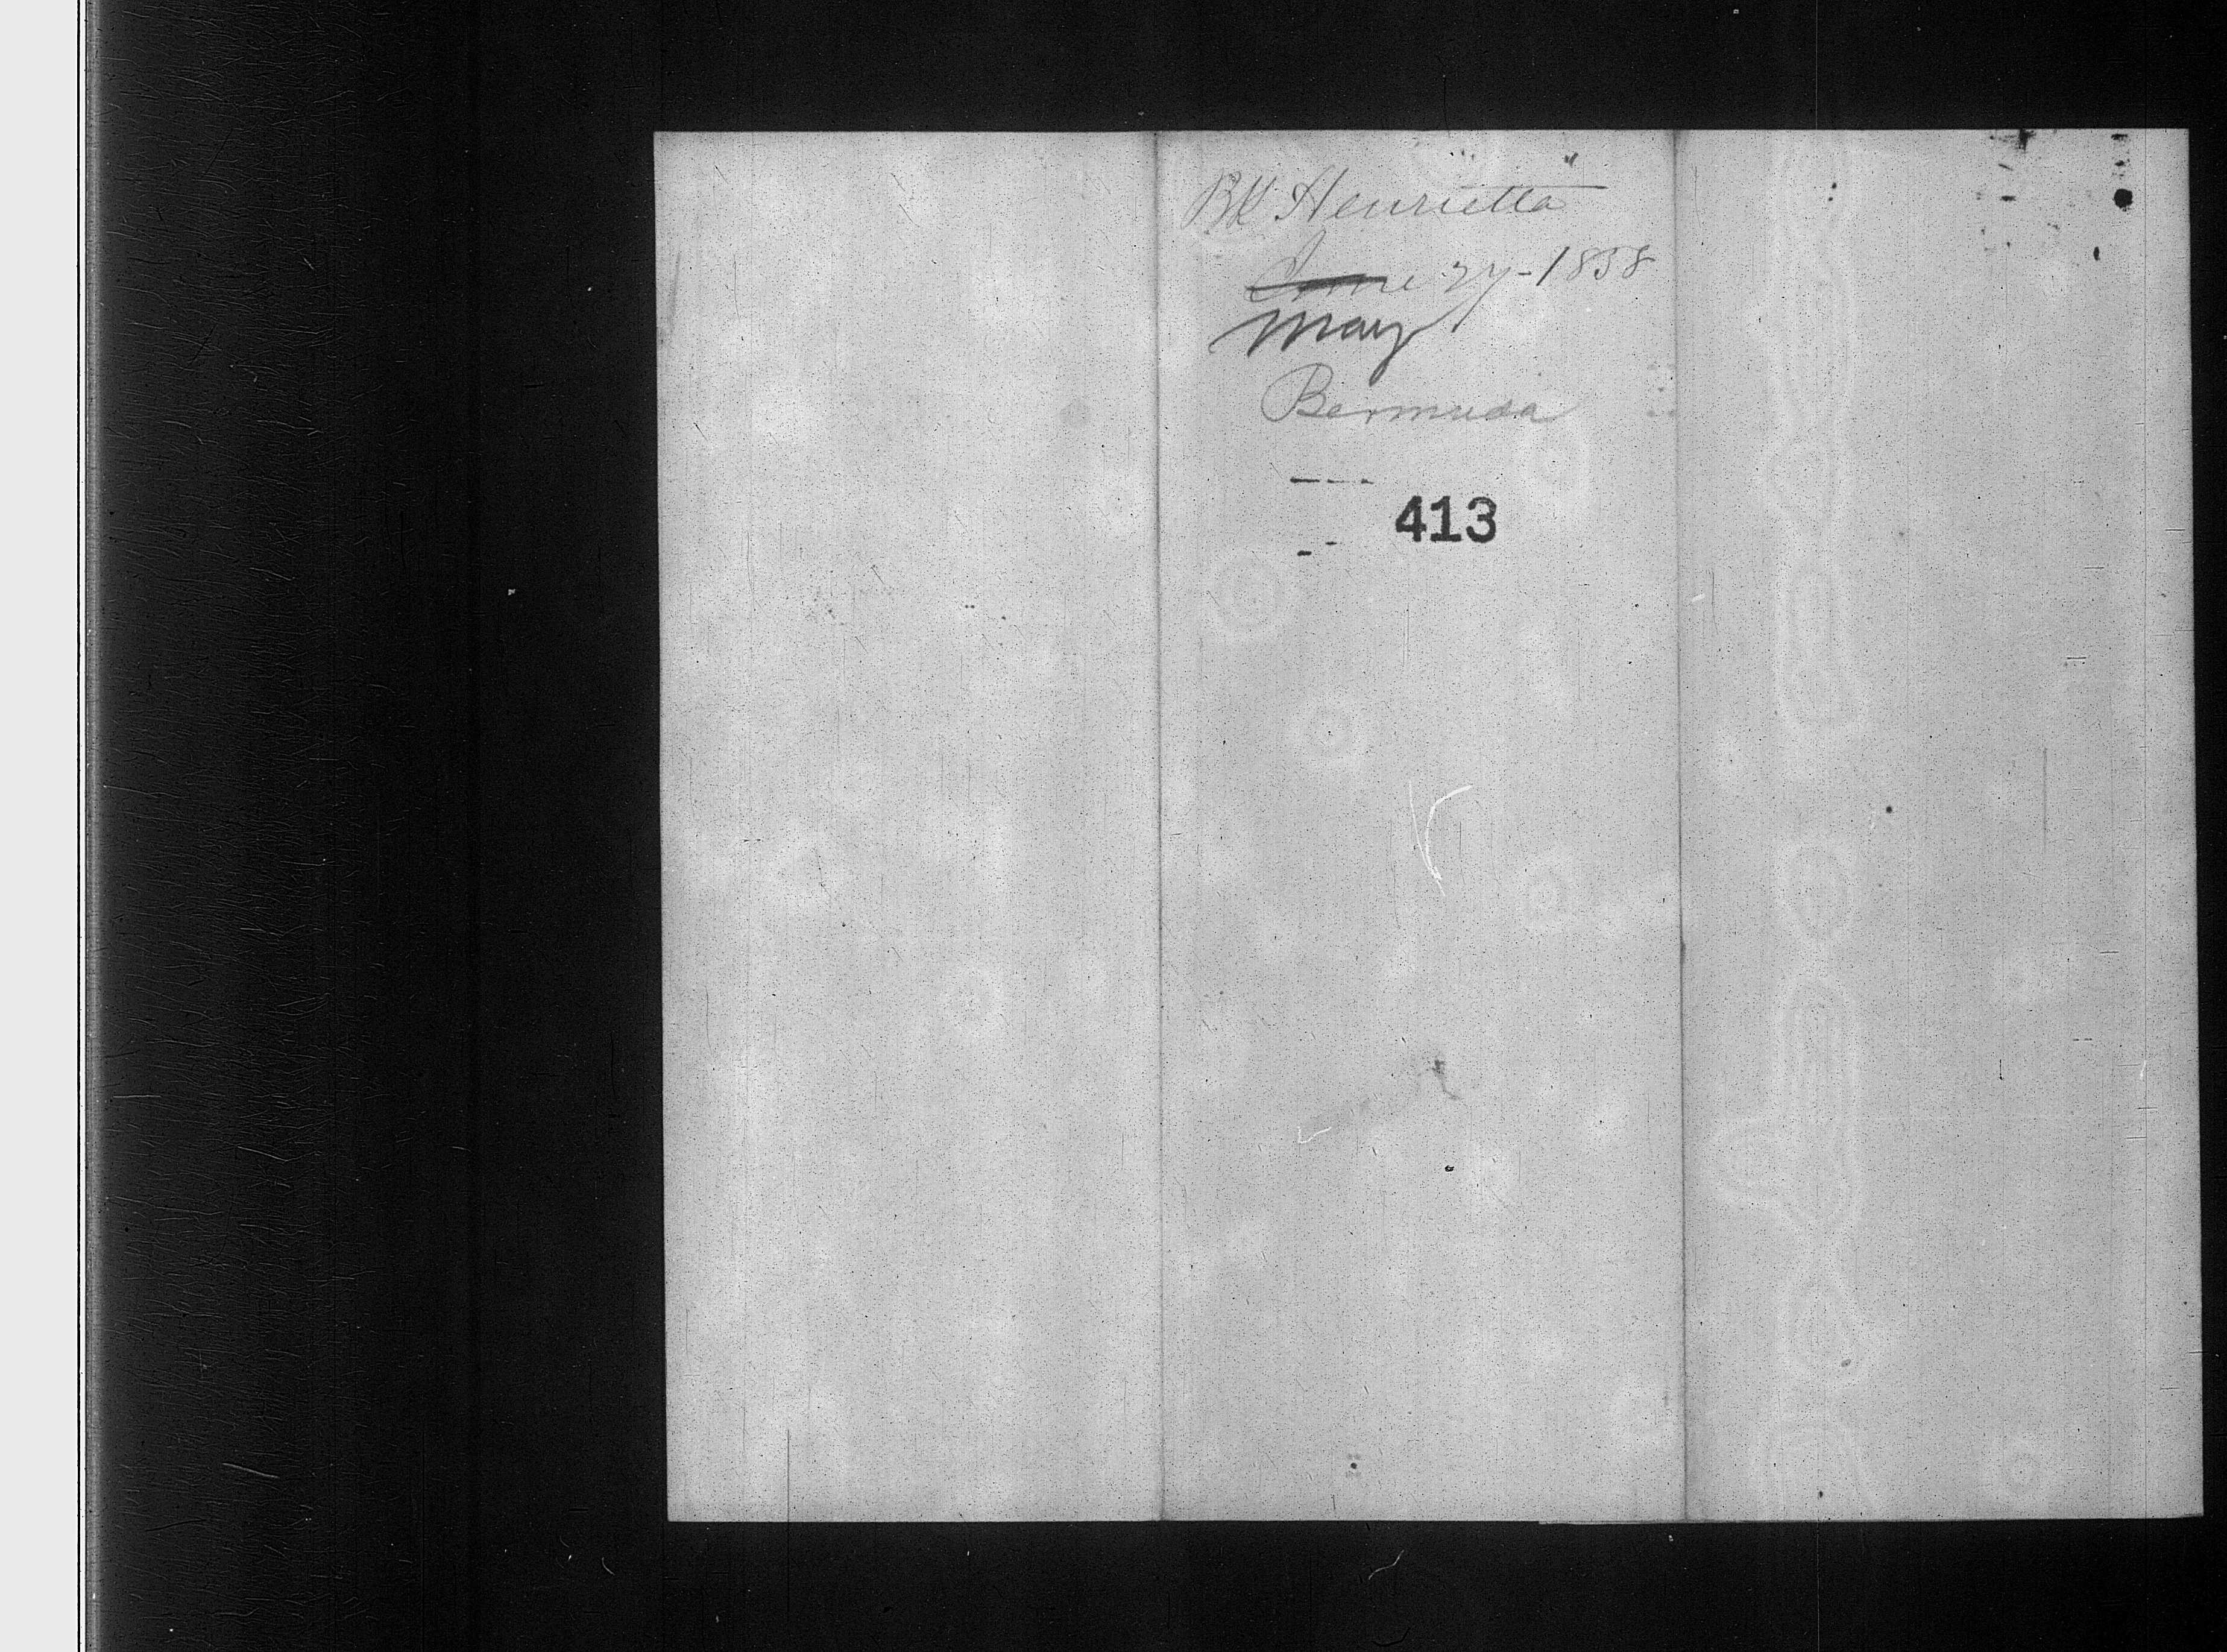 Bk Henrietta
June 27-1858
May
Bermuda
413